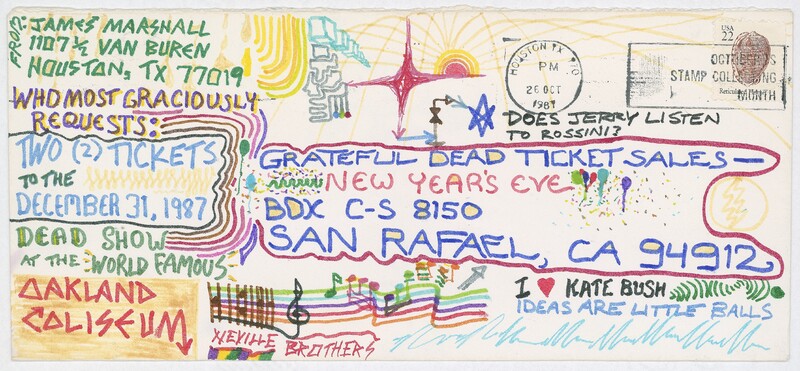 FROM: JAMES MARSHALL
1107 ½ VAN BUREN
HOUSTON, TX 77019
WHO MOST GRACIOUSLY
REQUESTS:
TWO (2) TICKETS
TO THE
DECEMBER 31, 1987
DEAD SHOW
AT THE WORLD FAMOUS
OAKLAND
COLISEUM
HOUSTON TX
PM
26 OCT
1987
OCTOBER IS
STAMP COLLECTING
MONTH
USA
22
DOES JERRY LISTEN
TO ROSSINI?
GRATEFUL DEAD TICKET SALES —
NEW YEAR'S EVE
BOX C-S 8150
SAN RAFAEL, CA 94912
I ♥ KATE BUSH
IDEAS ARE LITTLE BALLS
NEVILLE BROTHERS